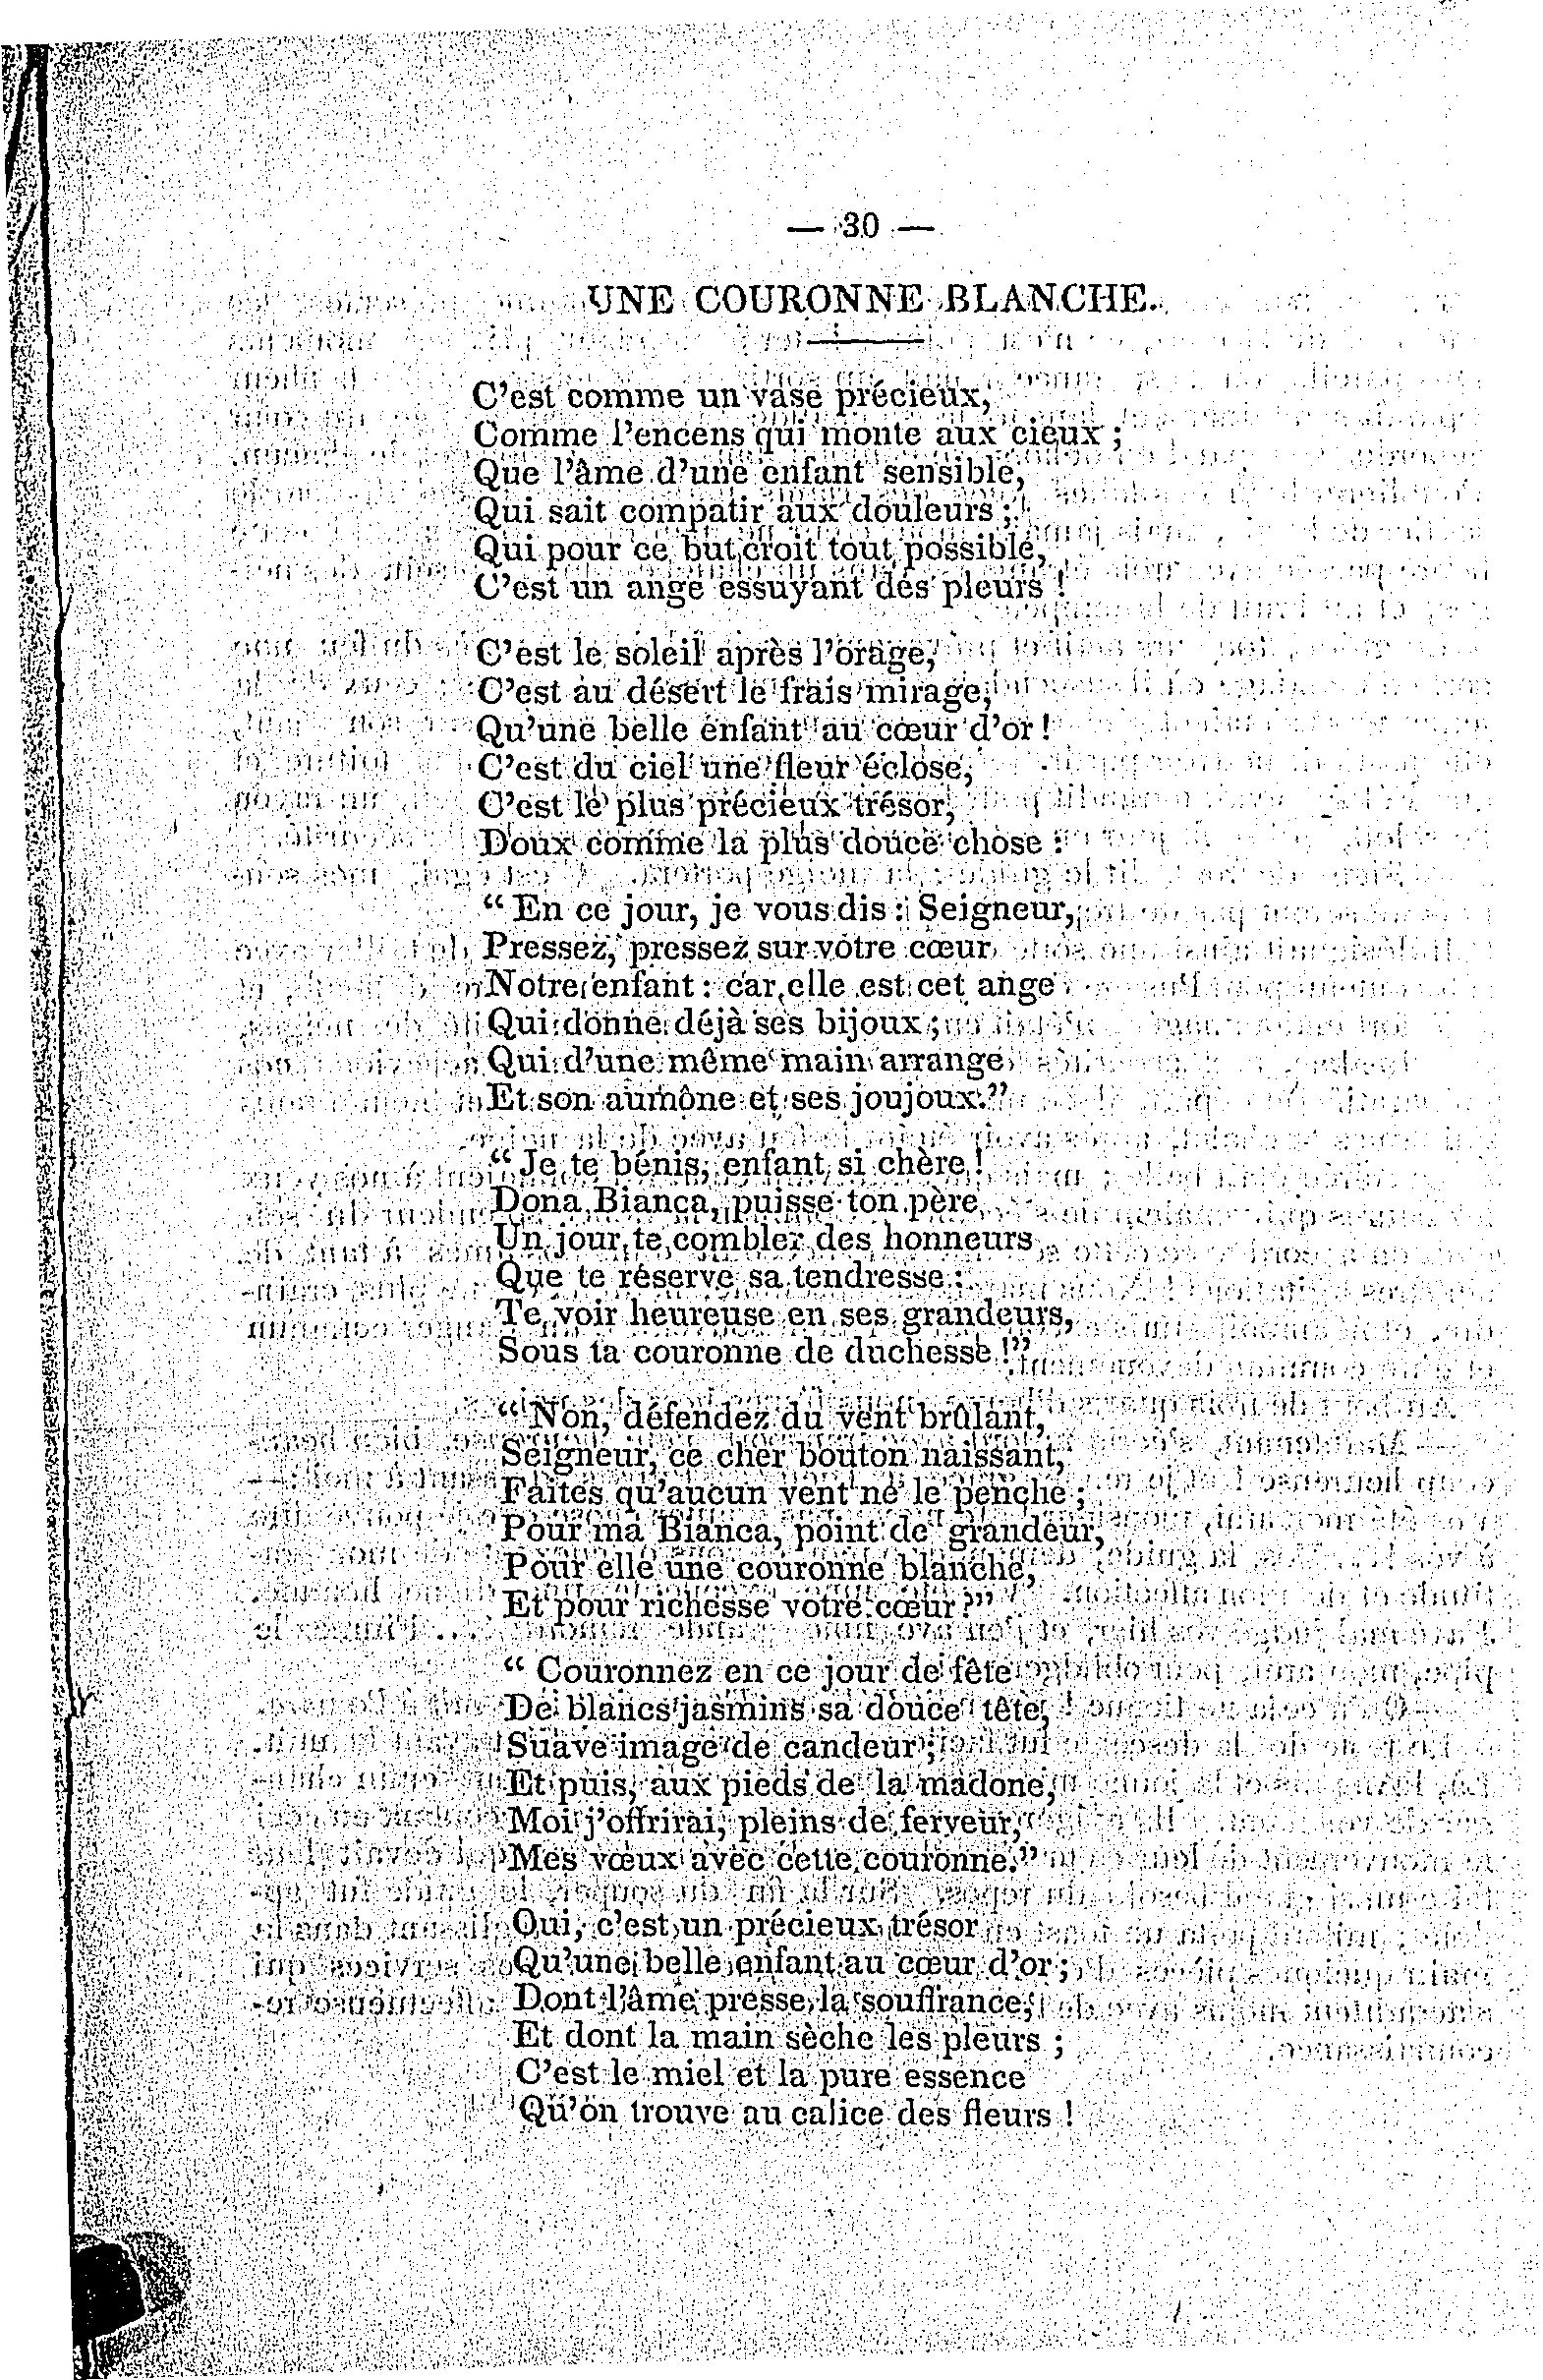 — 30 —
UNE COURONNE BLANCHE.
C'est comme un vase précieux,
Comme l'encens qui monte aux cieux ;
Que l'âme d'une enfant sensible,
Qui sait compatir aux douleurs ;
Qui pour ce but croit tout possible,
C'est un ange essuyant des pleurs !
C'est le soleil après l'orage,
C'est au désert le frais mirage,
Qu'une belle enfant au cœur d'or !
C'est du ciel une fleur éclose,
C'est le plus précieux trésor,
Doux comme la plus douce chose :
“ En ce jour, je vous dis : Seigneur,
Pressez, pressez sur votre cœur
Notre enfant : car elle est cet ange
Qui donne déjà ses bijoux ;
Qui d'une même main arrange
Et son aumône et ses joujoux.”
“ Je te bénis, enfant si chère !
Dona Bianca, puisse ton père
Un jour te combler des honneurs
Que te réserve sa tendresse :
Te voir heureuse en ses grandeurs,
Sous ta couronne de duchesse !”
“ Non, défendez du vent brûlant,
Seigneur, ce cher bouton naissant,
Faites qu'aucun vent ne le penche ;
Pour ma Bianca, point de grandeur,
Pour elle une couronne blanche,
Et pour richesse votre cœur ?”
“ Couronnez en ce jour de fête
De blancs jasmins sa douce tête,
Suave image de candeur ;
Et puis, aux pieds de la madone,
Moi j'offrirai, pleins de ferveur,
Mes vœux avec cette couronne.”
Oui, c'est un précieux trésor
Qu'une belle enfant au cœur d'or ;
Dont l'âme presse la souffrance,
Et dont la main sèche les pleurs ;
C'est le miel et la pure essence
Qu'on trouve au calice des fleurs !